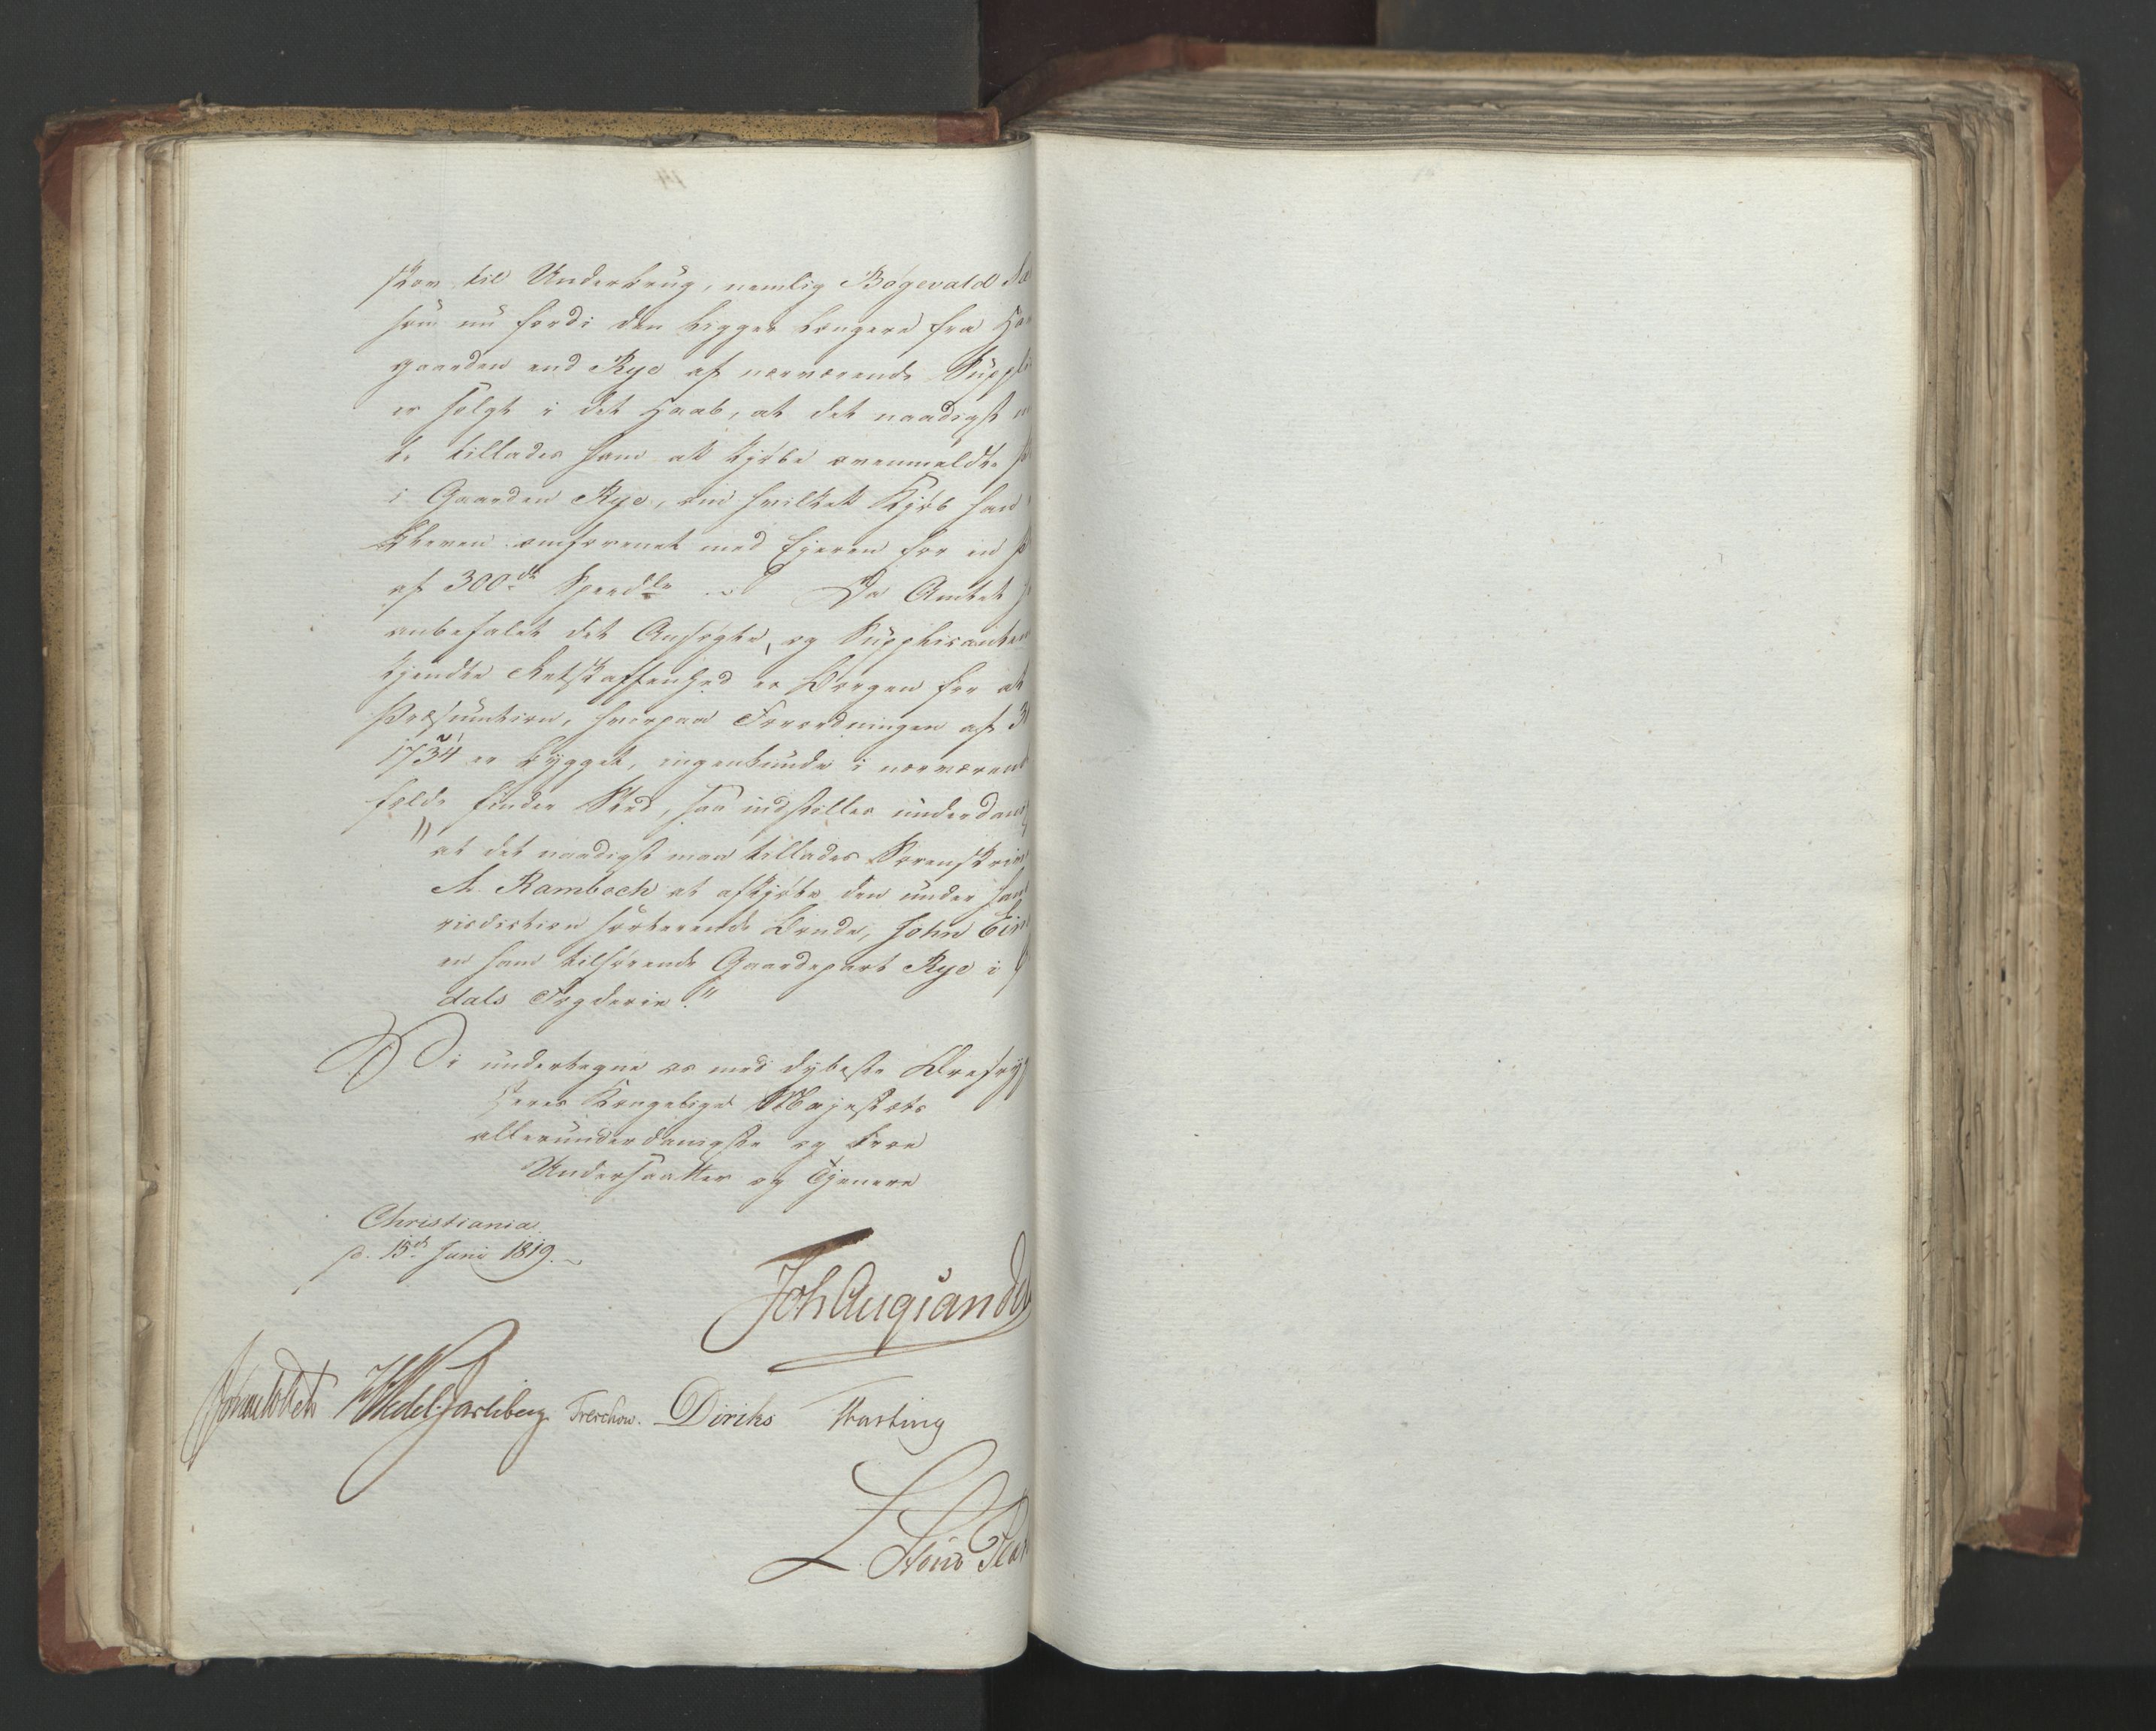 skov til Underbrug, nemlig Bøgevald
som nu fordi den ligger længere fra
gaarden end Rye af nærværende Suppli
er solgt i det Haab, at det naadigst
te tillades ham at kjøbe ovenmeldte
i Gaarden Rye, om hvilket Kjøb han
bleven omforenet med Ejeren for en
af 300de Specdlr. Da Amtet
anbefalet det Ansøgte, og Supplicanten
kjendte Retskaffenhed er Borgen for at
Præsumtion, hvorpaa Forordningen af 3
1734 er bygget, ingenlunde i nærværend
fælde finder Sted, saa indstilles underdan
"at det naadigst maa tillades Sorenskriv
A. Rambech at afkjøbe den under han
risdiction sorterende Bonde, John
en ham tilhørende Gaardepart Rye i
dals Fogderie."
Vi undertegne os med dybeste Ærefryg
Deres Kongelige Majestæts
allerunderdanigste og troe
Undersaatter og Tjenere
Christiania
d. 15d Juni 1819.
Joh Aug Sandel
Sommerhielm HWedel Jarlsberg Treschow. Diriks Fasting
L.